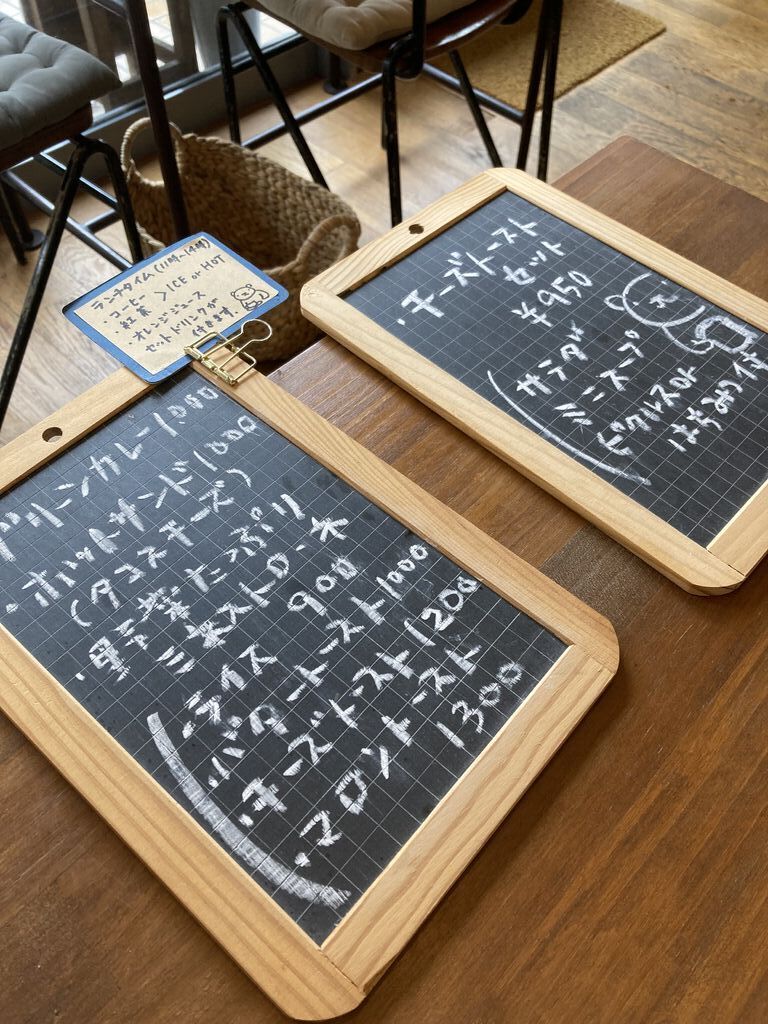 ランチタイム(11時〜14時)
・コーヒー
紅茶 > ICE or HOT
・オレンジジュース
セットドリンクが
付きます。
ドリンカレー 1.000
・ホットサンド 1000
(タコスチーズ)
・野菜たっぷり
ミネストローネ
(ライス 900
・バタートースト 1000
・チーズトースト 1200
・マロントースト
1300
・チーズトースト
セット
¥950
(サラダ
ミニスープ
ピクルス or
はちみつ付